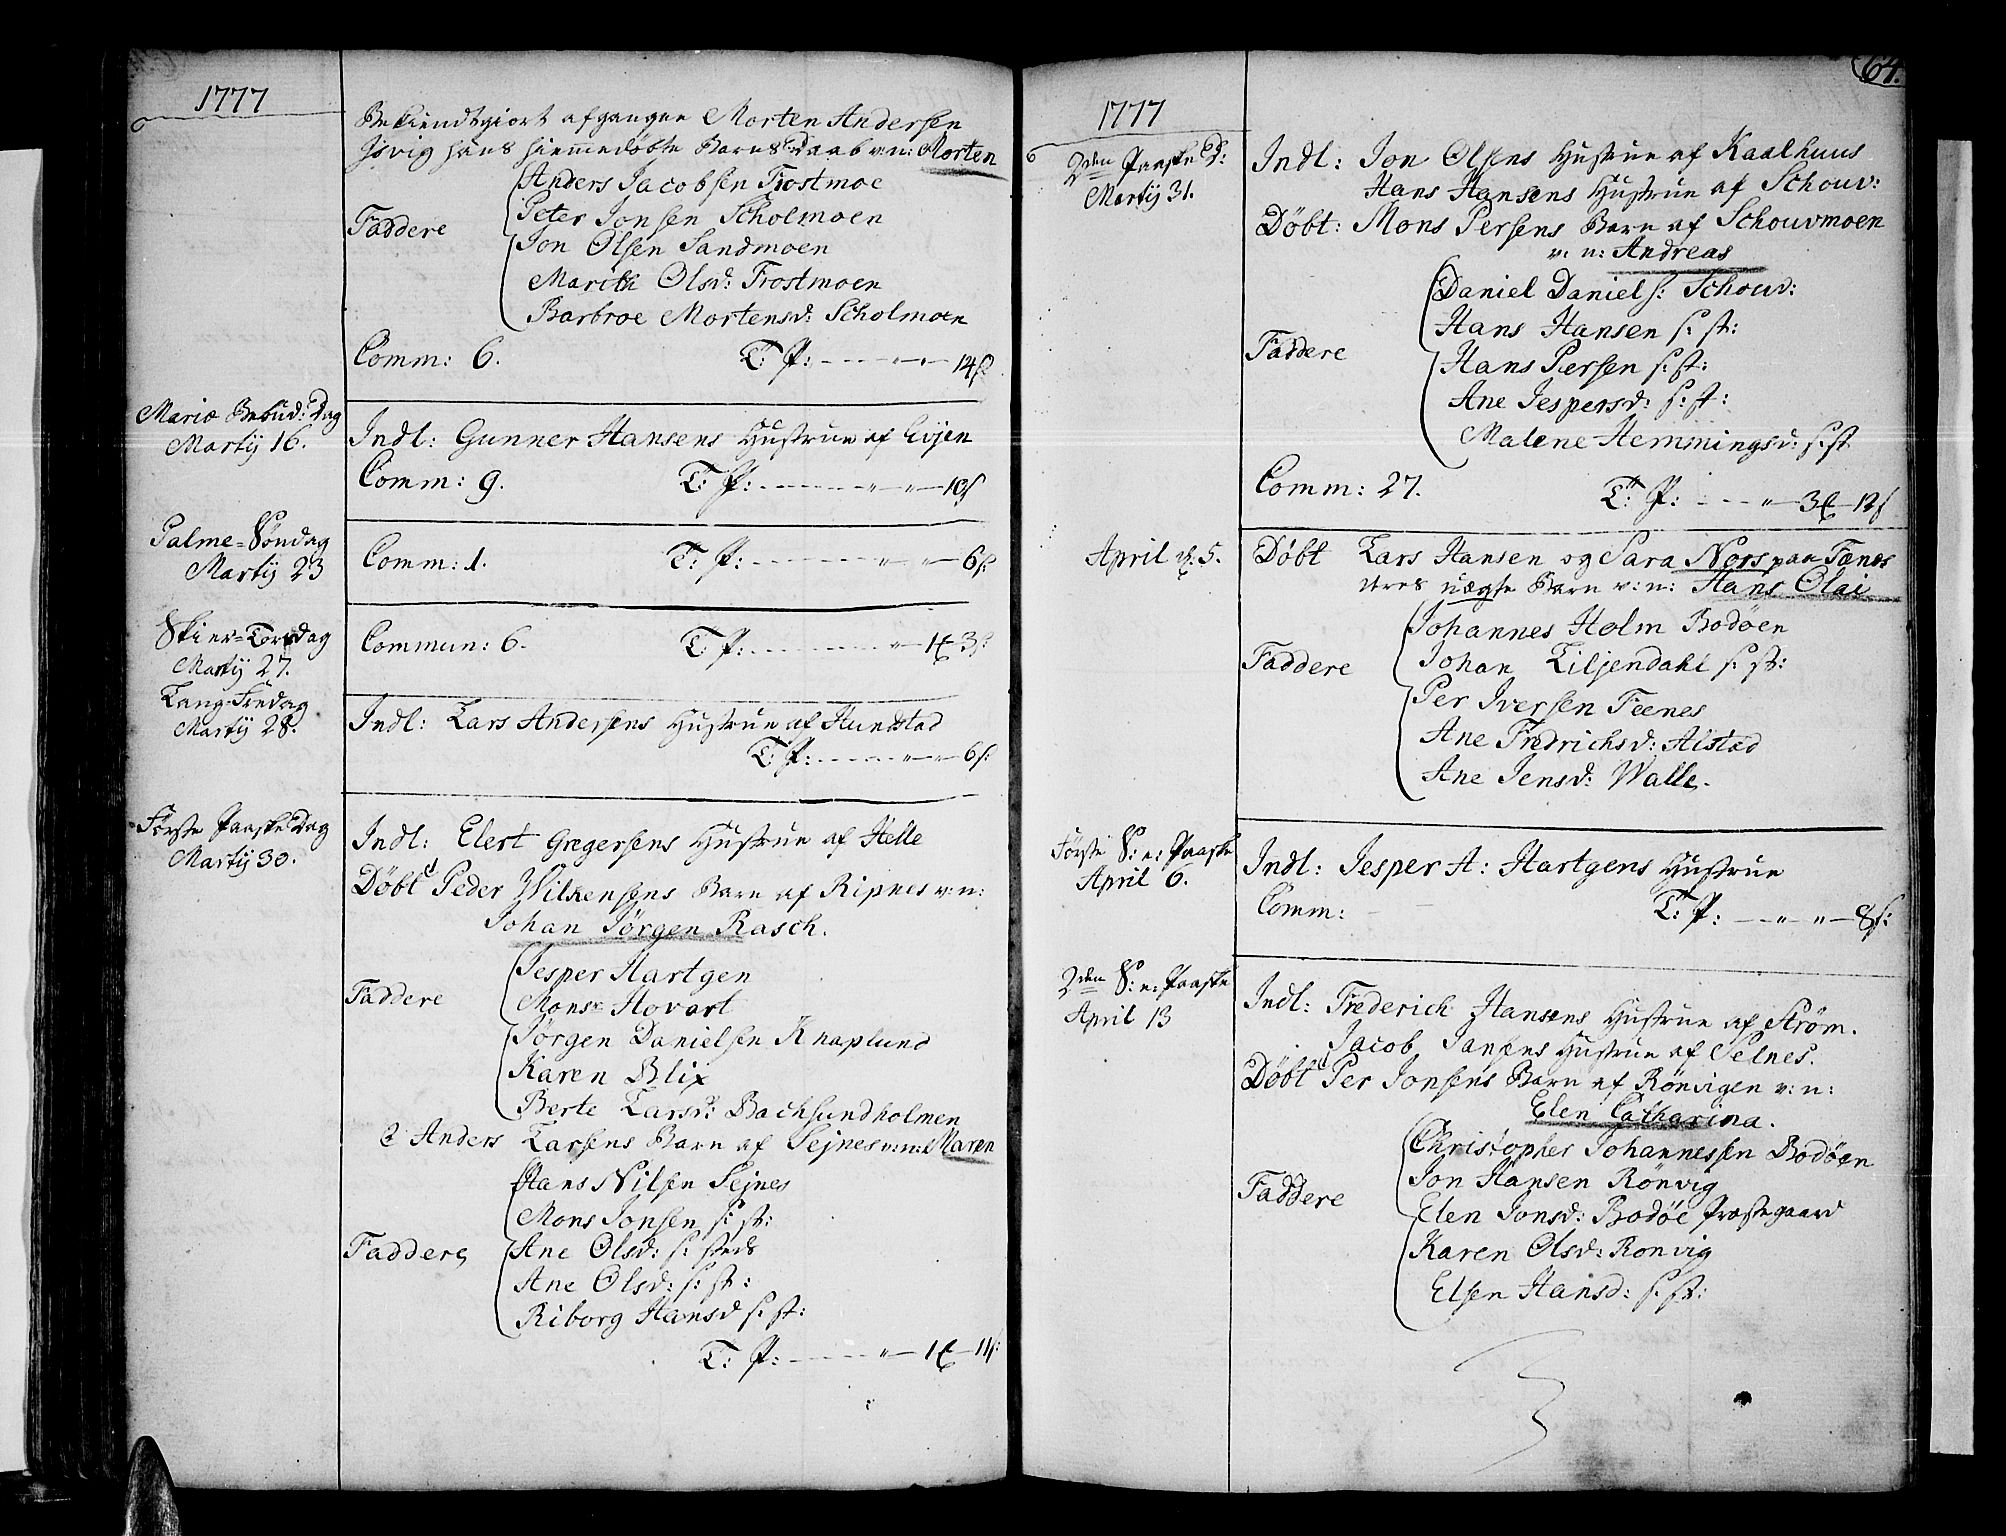 1777
Bekiendtgiort afgangne Morten Andersen
hans hiemmedøbte Barns Daab v: n: Morten
Anders Jacobsen Trostmoe
Peter Jonsen Scholmoen
Faddere
Jon Olsen Sandmoen
Marith Olsd: Trostmoen
Barbroe Mortensd: Scholmoen
Comm: 6. T: P: 14 s
Mariæ Bebud: Dag
Martij 16.
Indl: Gunner Hansens Hustrue af Evjen
Comm: 9. T: P: 10 s
Palme-Søndag
Martij 23
Comm: 1. T: P: 6 s:
Skier-Torsdag
Martij 27.
Commun: 6. T: P: 3 s:
Lang-Fredag
Martij 28.
Indl: Lars Andersens Hustrue af Hundstad
T: P: 6 s:
Første Paaske Dag
Martij 30.
Indl: Elert Gregersens Hustrue af Helle
Døbt Peder Wilkensens Barn af Ripnes v: n:
Johan Jörgen Rasch.
Jesper Hartgen
Faddere
Monsr Hovart
Jörgen Danielsen Knaplund
Karen Blix
Berte Larsd: Bachsundholmen
2 Anders Larsens Barn af Sejnes v: n: Maren
Hans Nilsen Sejnes
Mons Jonsen s: st:
Faddere
Ane Olsd: s: steds
Ane Olsd: s: st:
Riborg Hansd s: st:
T: P: 11 s:
64.
1777
2den Paaske D:
Martij 31.
Indl: Jon Olsens Hustrue af Kaalhuus
Hans Hansens Hustrue af Schouv:
Døbt: Mons Persens Barn af Schouvmoen
v: n: Andreas
Daniel Daniels: Schouv:
Hans Hansen s: st:
Faddere
Hans Persen s: st:
Ane Jespersd: s: st:
Malene Hemmingsd: s: st
Comm: 27. T: P: 12 s
April d. 5.
Døbt Lars Hansen og Sara Nors paa Fænes
deres uægte Barn v: n: Hans Olai
Johannes Holm Bodöen
Faddere
Johan Liljendahl s: st:
Per Iversen Feenes
Ane Fredrichsd: Alstad
Ane Jensd: Walle.
Første S: e: Paaske
April 6.
Indl: Jesper H: Hartgens Hustrue
Comm: T: P: 8 s:
2den S: e: Paaske
April 13
Indl: Frederich Hansens Hustrue af Ström.
Jacob Jansens Hustrue af Selnes.
Døbt Per Jonsens Barn af Rönvigen v: n:
Elen Catharina.
Christopher Johannessen Bodöen
Jon Hansen Rönvig
Faddere
Elen Jonsd: Bodöe Præstegaard
Karen Olsd: Ronvig
Elsen Hansd: s: st: